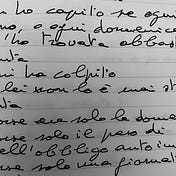 ho capito se ogni
o ogni domenica
l'ho trovata abbas
ta
mi ha colpito
lei non lo è mai st
ta
rse era solo la dome
rse solo il peso di
ell'obbligo autoim
rse solo una giornat